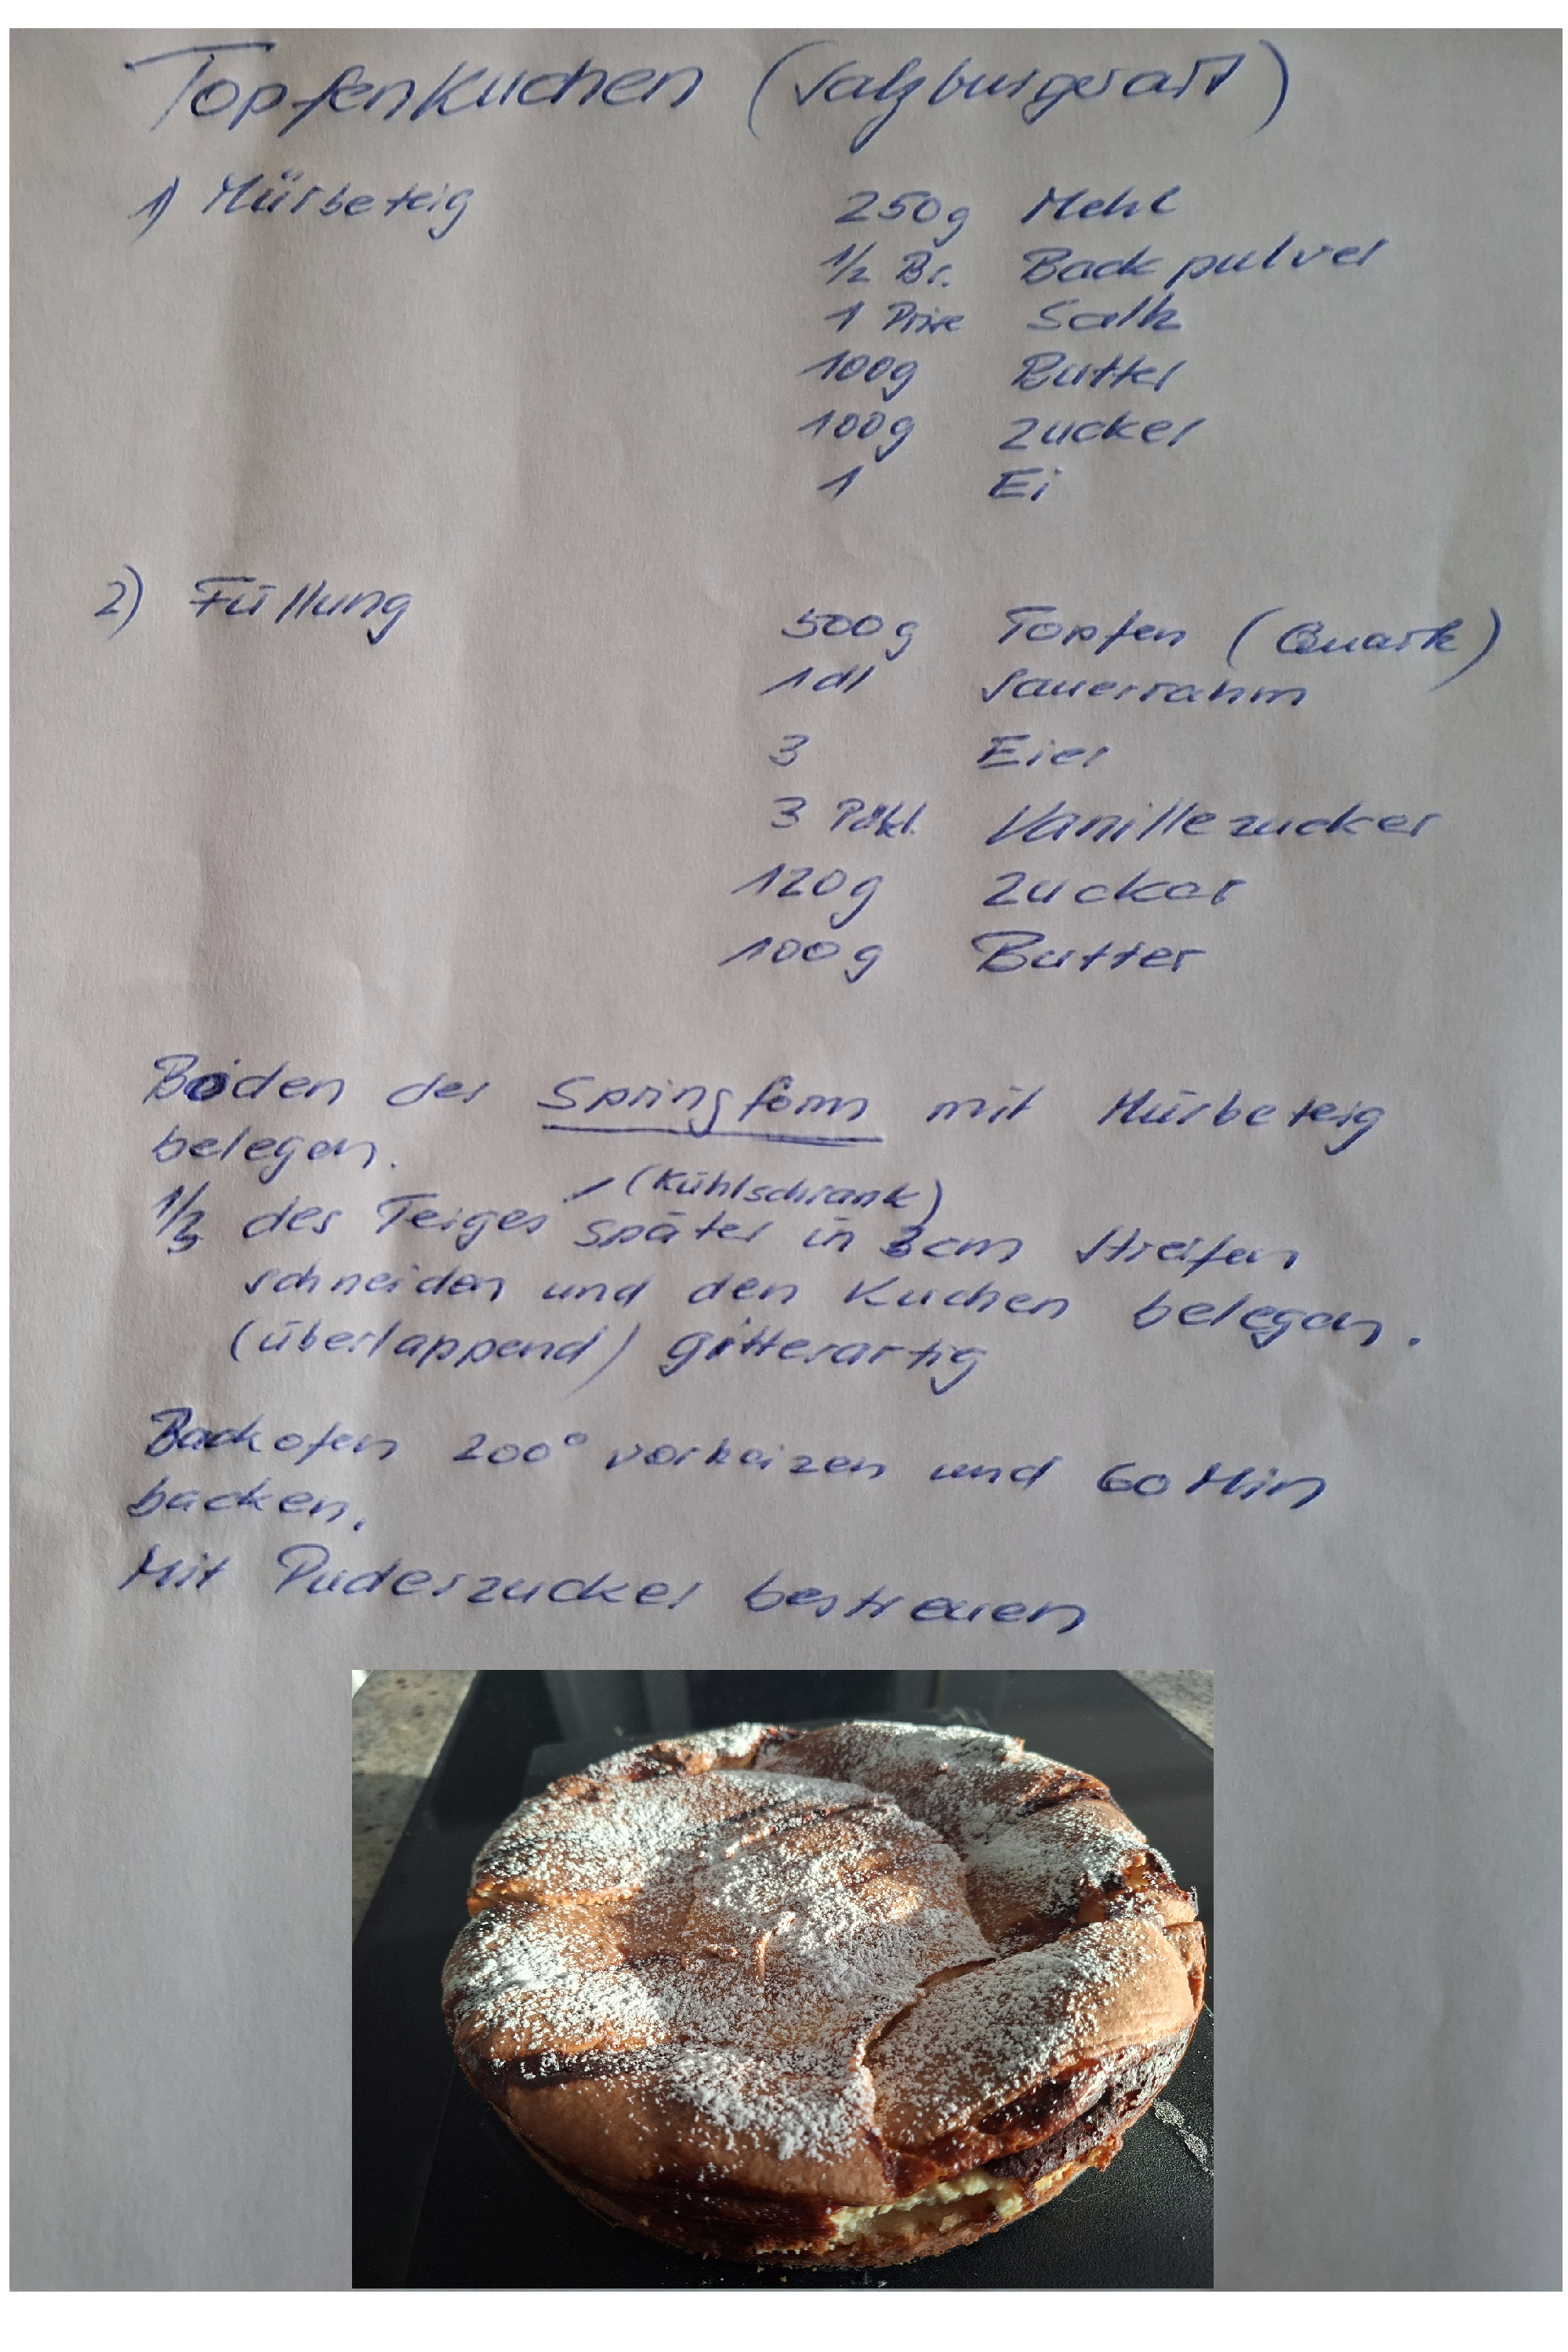 Topfenkuchen (Salzburgerart)
1) Mürbeteig 250g Mehl
1/2 Br. Backpulver
1 Prise Salz
100g Butter
100g Zucker
1 Ei
2) Füllung 500g Topfen (Quark)
1dl Sauerrahm
3 Eier
3 Päkl. Vanillezucker
120g Zucker
100g Butter
Boden der Springform mit Mürbeteig
belegen.
(Kühlschrank)
1/3 des Teiges später in 3cm Streifen
schneiden und den Kuchen belegen.
(überlappend) gitterartig
Backofen 200° vorheizen und 60 Min
backen.
Mit Puderzucker bestreuen